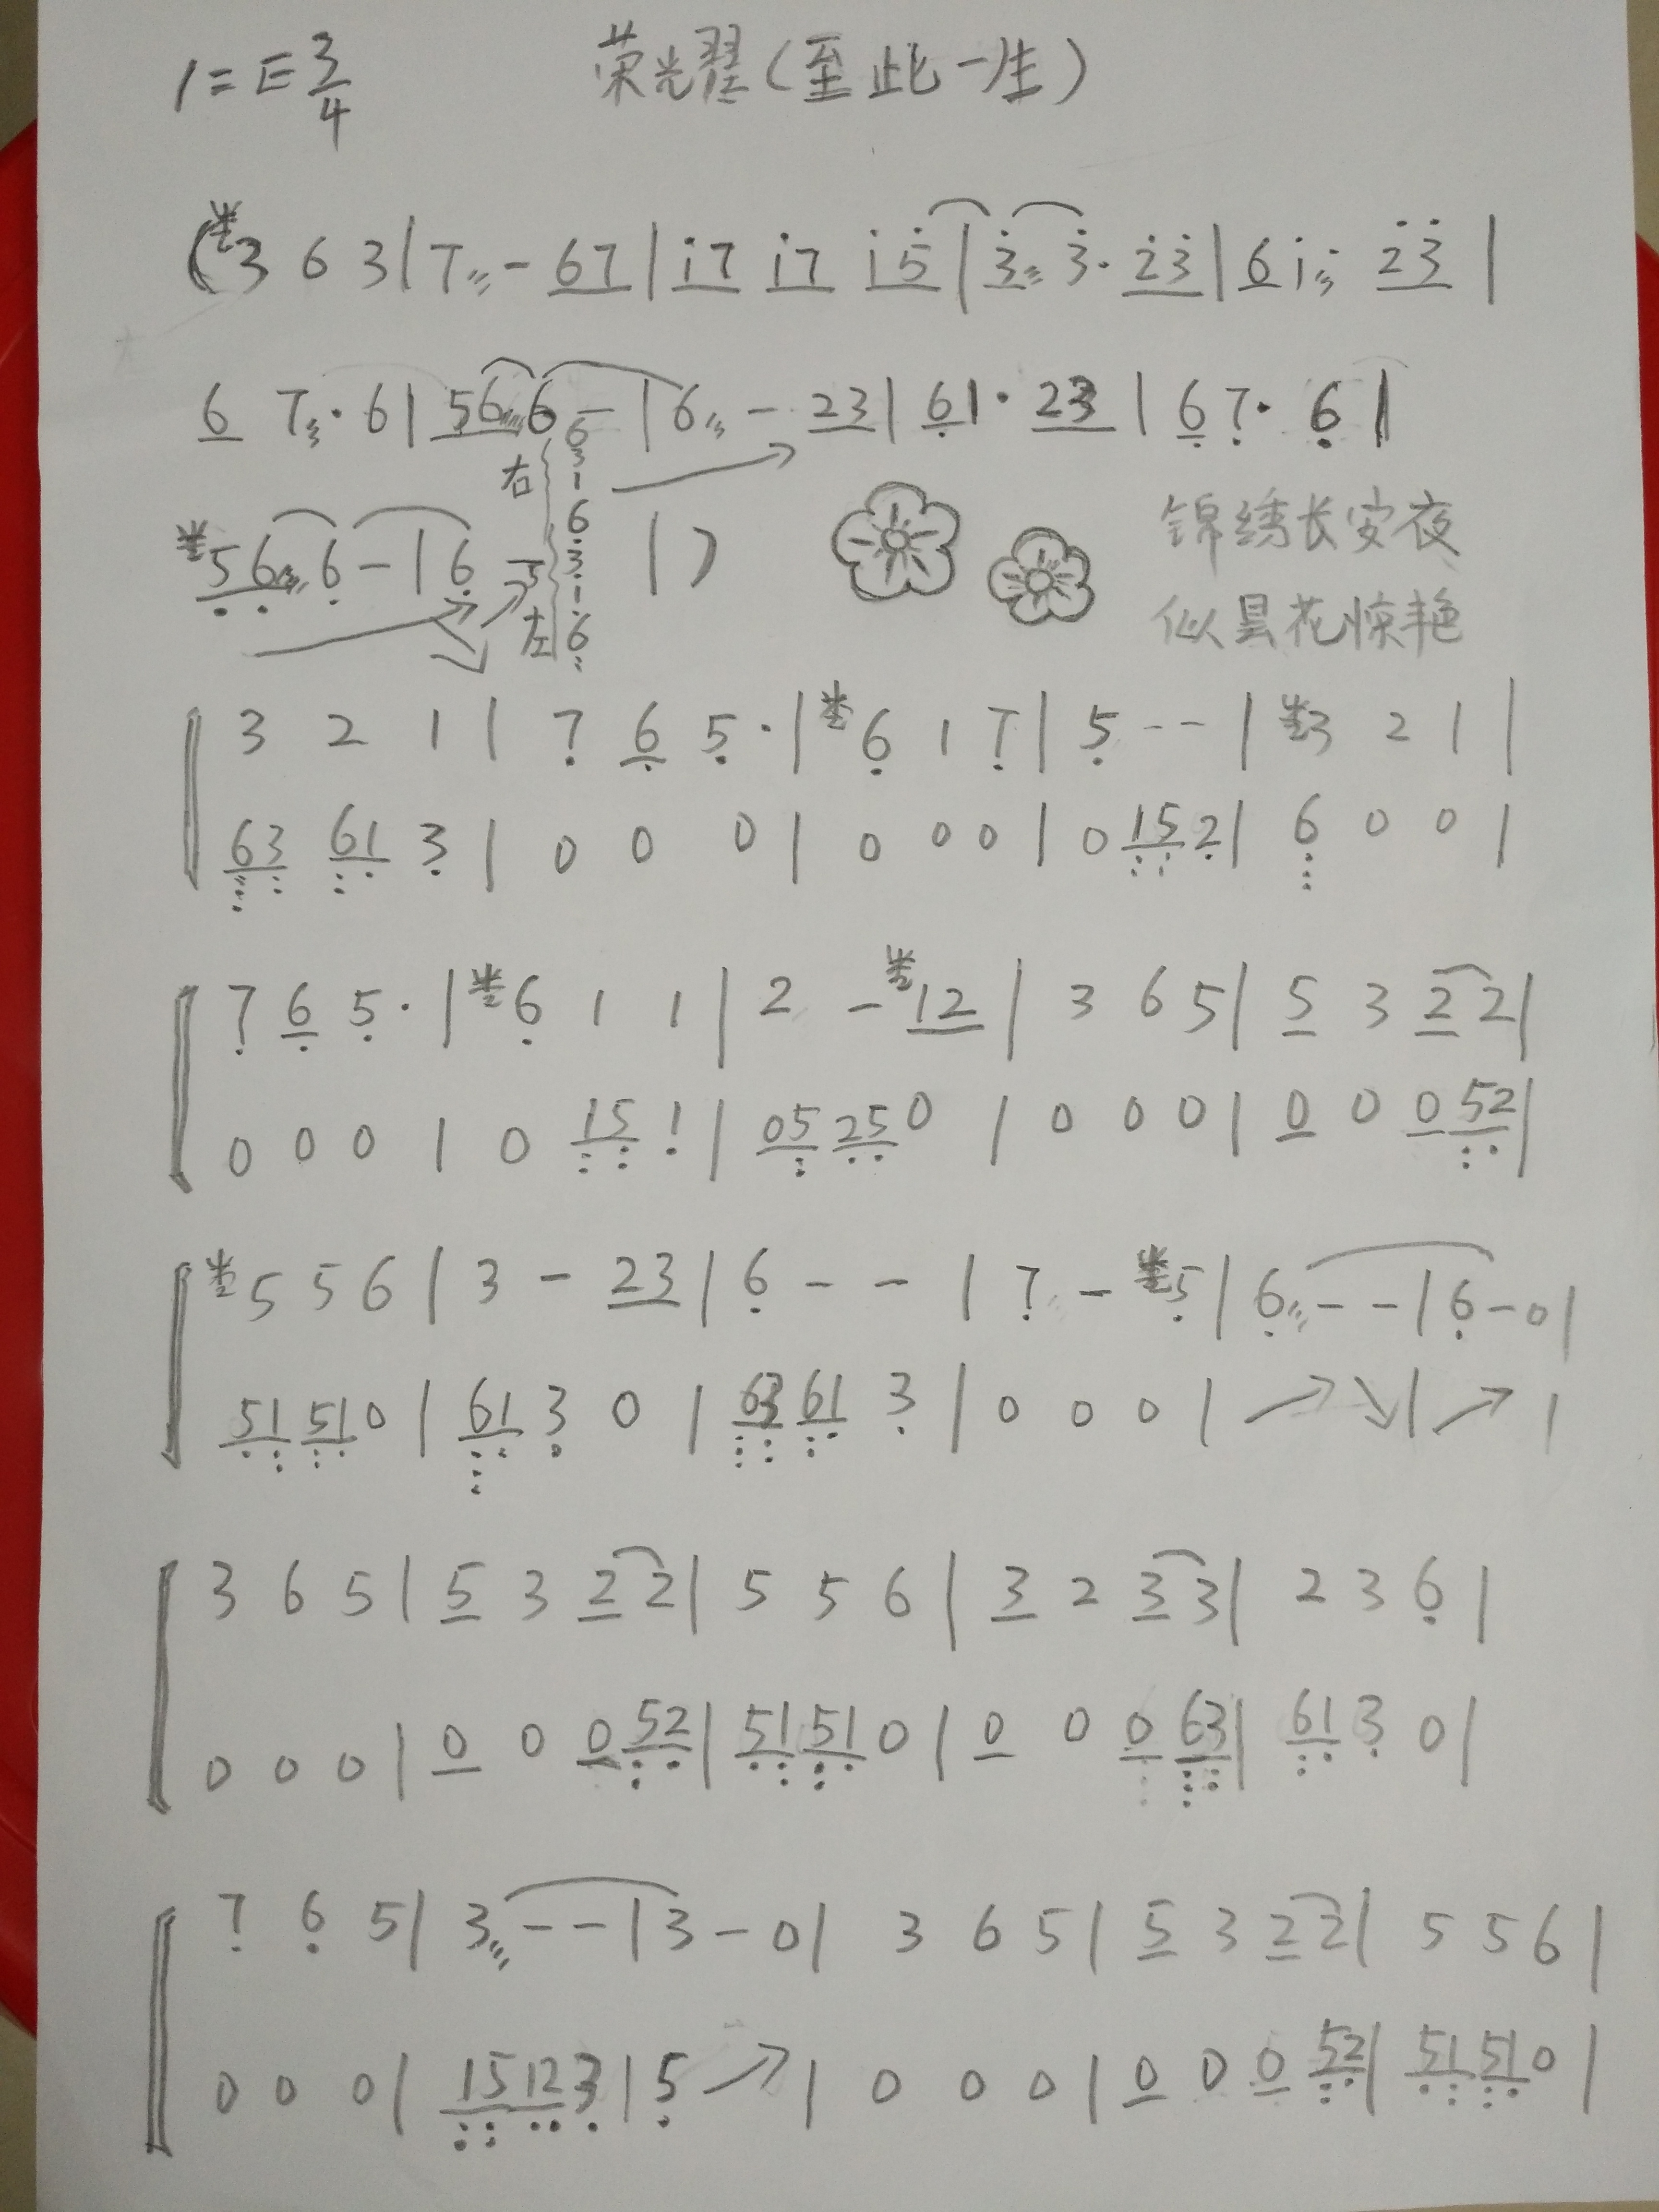 1=E 3/4 荣光耀(至此一生)
(3 6 3 | 7 - 67 | i7 i7 i5 | 3 3· 23 | 6 i 23 |
6 7· 6 | 56 6 - | 6 - 23 | 61· 23 | 67· 6 |
右 6 3 1 6 3 1 6 左
56 6 - | 6 - | )
锦绣长安夜
似昙花惊艳
3 2 1 | 7 6 5· | 6 1 7 | 5 - - | 3 2 1 |
63 61 3 | 0 0 0 | 0 0 0 | 0 15 2 | 6 0 0 |
7 6 5· | 6 1 1 | 2 - 12 | 3 6 5 | 5 3 2 2 |
0 0 0 | 0 15 1 | 05 25 0 | 0 0 0 | 0 0 0 52 |
5 5 6 | 3 - 23 | 6 - - | 7 - 5 | 6 - - | 6 - 0 |
51 51 0 | 61 3 0 | 63 61 3 | 0 0 0 | ↗ ↘ | ↗ |
3 6 5 | 5 3 2 2 | 5 5 6 | 3 2 3 3 | 2 3 6 |
0 0 0 | 0 0 0 52 | 51 51 0 | 0 0 0 63 | 61 3 0 |
7 6 5 | 3 - - | 3 - 0 | 3 6 5 | 5 3 2 2 | 5 5 6 |
0 0 0 | 15 12 3 | 5 ↗ | 0 0 0 | 0 0 0 52 | 51 51 0 |